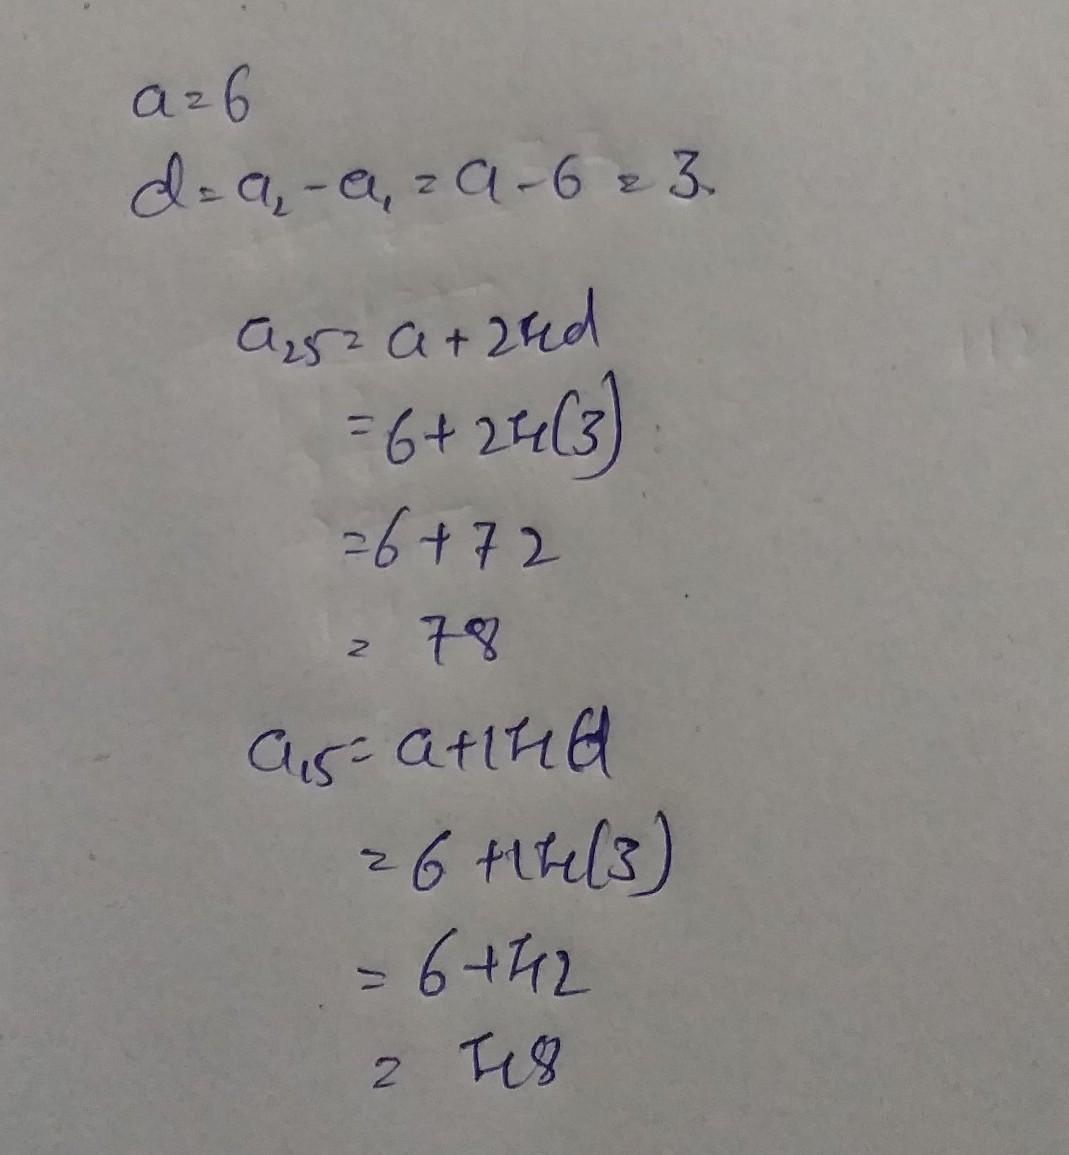 a = 6
d = a₂ - a₁ = 9 - 6 = 3.
a₂₅ = a + 24d
= 6 + 24(3)
= 6 + 72
= 78
a₁₅ = a + 14d
= 6 + 14(3)
= 6 + 42
= 48